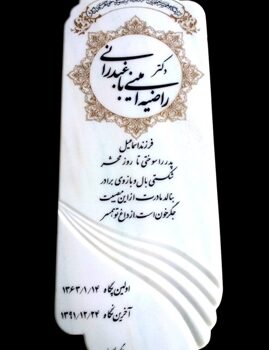 دکتر
راضیه امینی باغبدرانی
فرزند اسماعیل
پدر را سوختی تا روز محشر
شکستی بال و بازوی برادر
بنالد مادرت از این مصیبت
جگر خون است از داغ تو همسر
اولین پگاه ۱۳۶۳/۱/۱۴
آخرین نگاه ۱۳۹۱/۱۲/۲۴